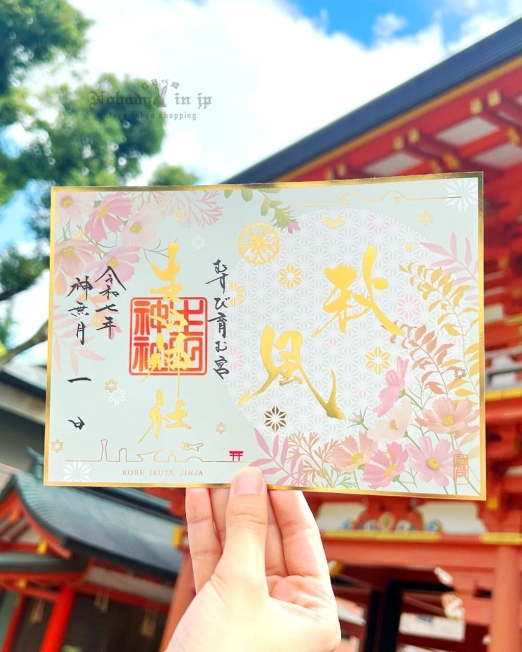 Nobody in jp
love tokyo shopping
秋風
むすび育む宮
生田神社
生田神社
令和七年
神無月 一日
KOBE IKUTA JINJA